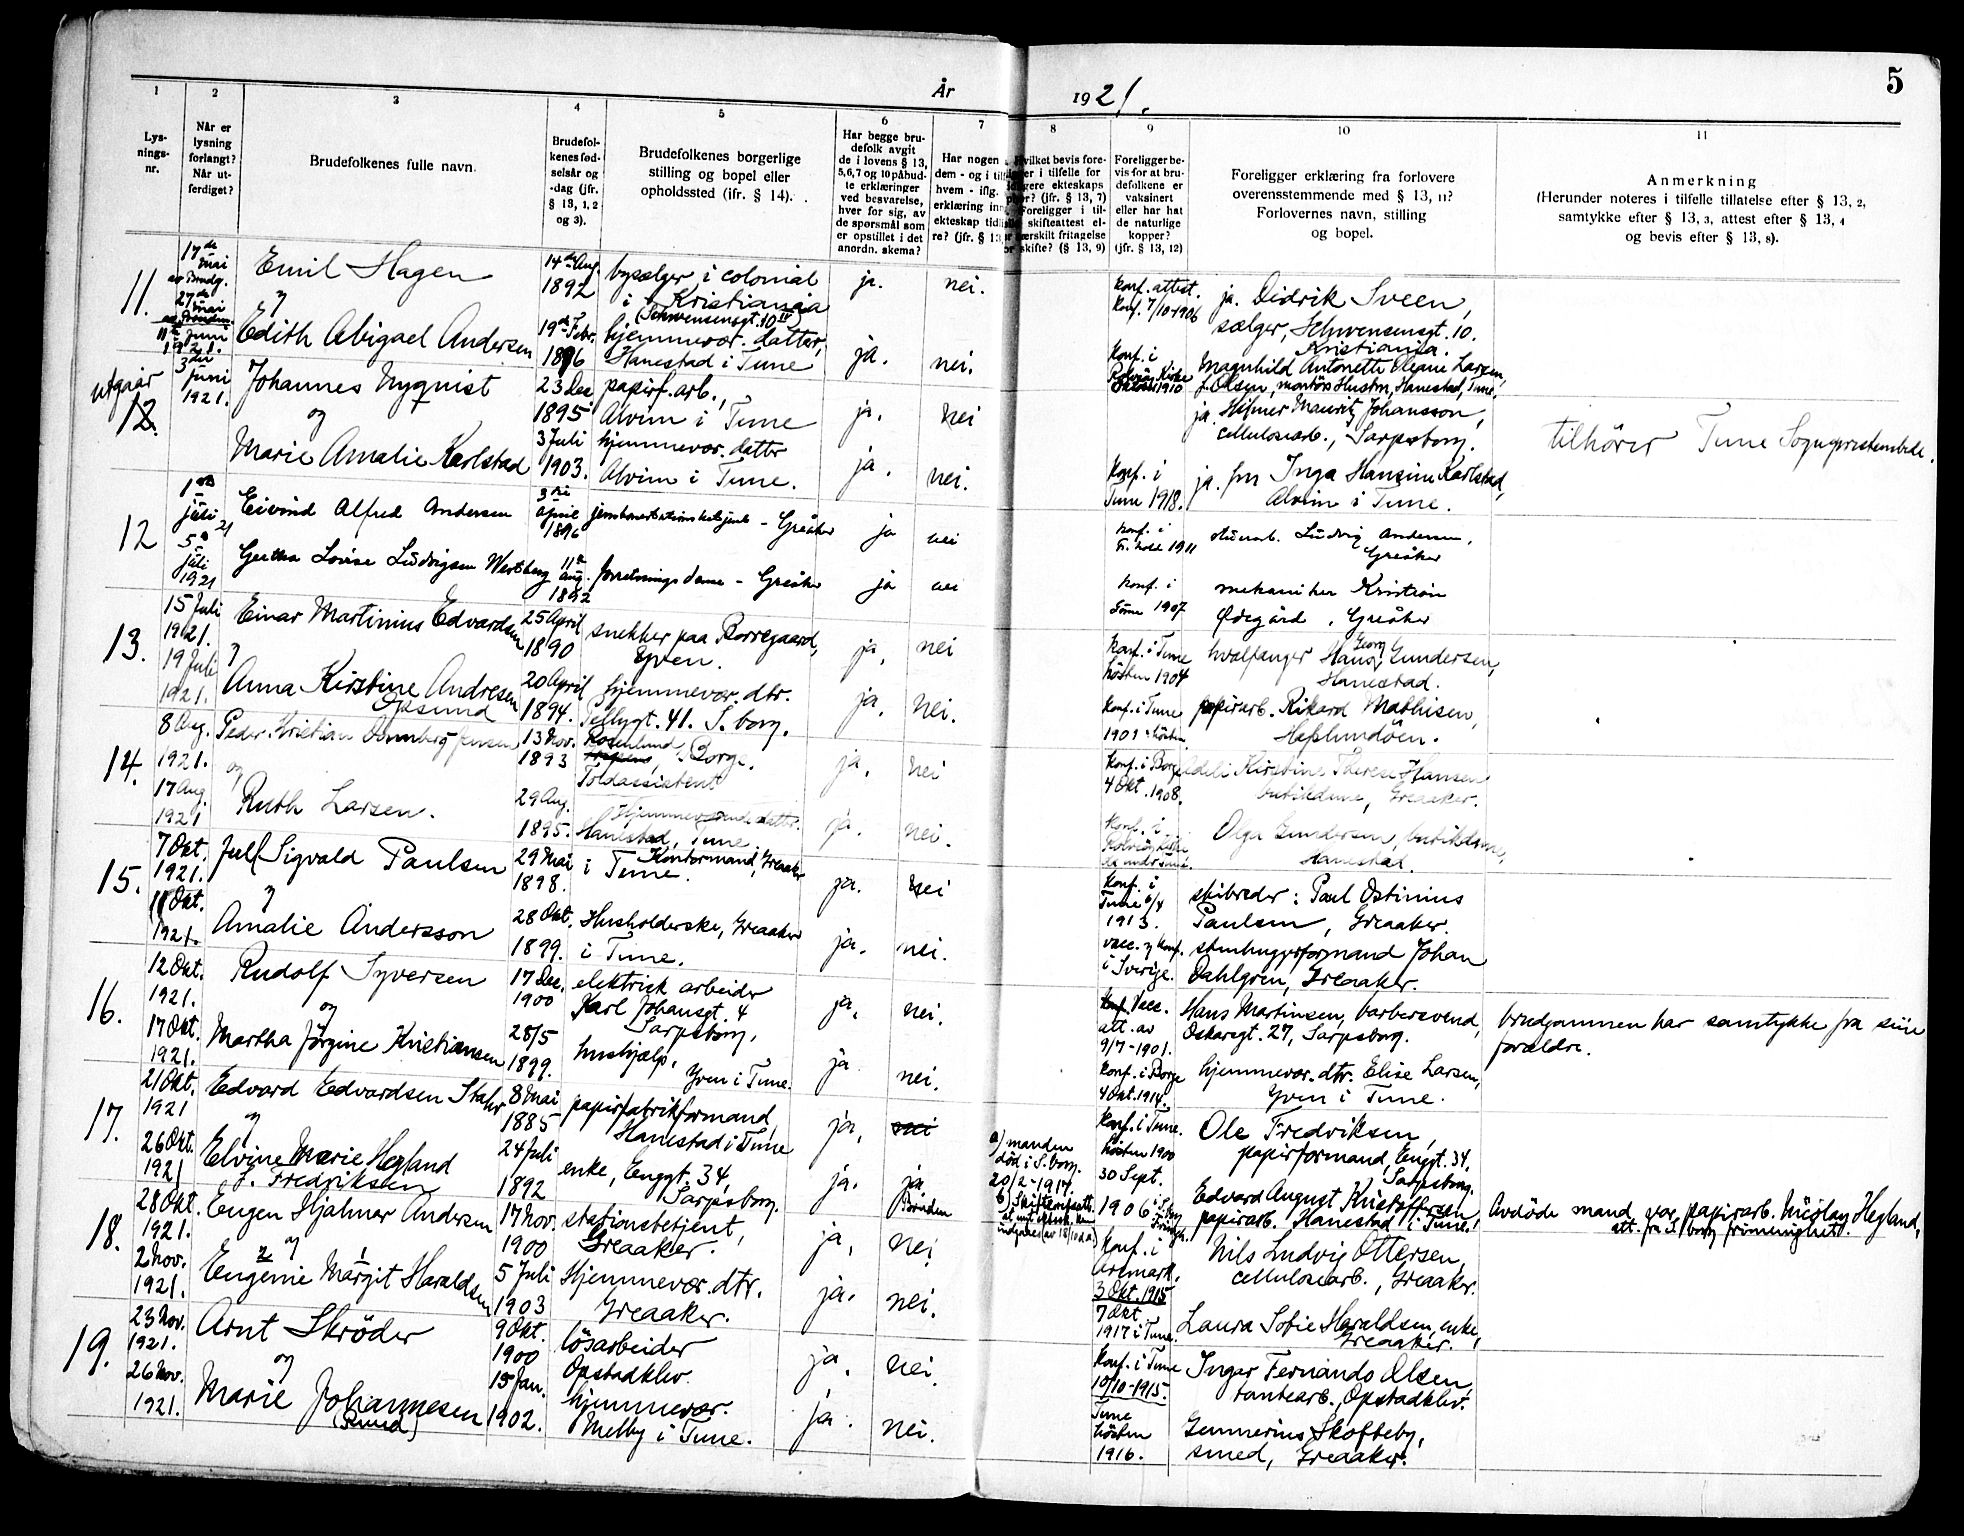 År 1921.
5
1
2
3
4
5
6
7
8
9
10
11
Lys-
nings-
nr.
Når er
lysning
forlangt?
Når ut-
ferdiget?
Brudefolkenes fulle navn.
Brudefol-
kenes fød-
selsår og
-dag (jfr.
§ 13, 1, 2
og 3).
Brudefolkenes borgerlige
stilling og bopel eller
opholdssted (ifr. § 14).
Har begge bru-
defolk avgit
de i lovens § 13,
5,6,7 og 10 påbud-
te erklæringer
ved besvarelse,
hver for sig, av
de spørsmål som
er opstillet i det
anordn. skema?
Har nogen
dem - og i til
hvem - iflg.
erklæring inn
ekteskap tid
re? (jfr. § 13,
vilket bevis fore-
er i tilfelle for
gere ekteskaps
r? (jfr. § 13, 7)
Foreligger i til-
skifteattest el-
ærskilt fritagelse
skifte? (§ 13, 9)
Foreligger be-
vis for at bru-
defolkene er
vaksinert
eller har hat
de naturlige
kopper?
(jfr. § 13, 12)
Foreligger erklæring fra forlovere
overensstemmende med § 13, 11?
Forlovernes navn, stilling
og bopel.
Anmerkning
(Herunder noteres i tilfelle tillatelse efter § 13, 2,
samtykke efter § 13, 3, attest efter § 13, 4
og bevis efter § 13, 8).
11.
17de
mai
27de
mai
11te juni
1921.
Emil Hagen
Edith Abigael Andersen
14de Aug.
1892
19de Febr.
1896
bysælger i colonial
i Kristiania
(Schwensensgt. 10 IV)
hjemmevær. datter,
Hanestad i Tune
ja.
ja.
nei.
nei.
Konf. attest.
Konf. 7/10-1906
Konf. i
Kirke
1910
ja. Didrik Sveen,
sælger, Schwensensgt. 10.
Kristiania.
Magnhild Antonette Oleane Larsen,
f. Olsen, Hustru, Hanestad, Tune.
utgaar
12.
3die
juni
1921.
Johannes Nyqvist
og
Marie Amalie Karlstad
23 Des
1895
3 Juli
1903.
papirf. arb.,
Alvim i Tune
hjemmevær. datter
Alvim i Tune.
ja.
ja.
nei
nei.
Konf. i
Tune 1918.
ja. Hilmer Mauritz Johansson,
cellulosearb., Sarpsborg.
ja. fru Inga Hansine Karlstad,
Alvim i Tune.
tilhører Tune Sogneprestembede.
12
juli 21
5te
juli
1921
Eivind Alfred Andersen
Gertha Lovise Ludvigsen Westberg
april
1896
11te
aug.
1892
jernbanestationsbetjent - Greåker
forretningsdame - Greåker
ja
ja
nei
nei
Konf. i
1911
Konf. i
Tune 1907
Ludvig Andersen,
Greåker
mekaniker Kristian
Ødegård, Greåker
13.
15 Juli
1921.
19 Juli
1921.
Einar Martinius Edvardsen
Anna Kirstine Andresen
Opsund
25 April
1890
20 April
1894.
snekker paa Borregaard,
Yven.
hjemmevær. dtr.
Pellygt. 41. S.borg.
ja,
ja,
nei
nei.
Konf. i Tune
hösten 1904
Konf. i Tune
hvalfanger Hans Georg Gundersen,
Hanestad.
papirarb. Rikard Mathisen,
Hafslundöen.
14.
8 Aug.
1921.
17 Aug
1921
Peder Kristian Jensen
og
Ruth Larsen.
13 Nov.
1893
29 Aug.
1895.
Rosenlund, Borge.
Toldassistent
Hjemmeværende datter.
Hanestad, Tune
ja.
ja.
nei
nei.
Konf. i Borge
4 Okt. 1908.
Konf. i
Kirstine Therese Hansen
butikdame, Greaaker.
Olga Gundersen, butikdame,
Hanestad.
15.
7 Okt.
1921.
11 Okt.
1921.
Juell Sigvald Paulsen
Amalie Andersson
29 Mai
1898.
28 Okt.
1899.
Kontormand, Greaaker
i Tune.
Husholderske, Greaaker
i Tune.
ja.
ja.
nei
nei.
Konf. i
Tune
1913.
vacc. og konf.
i Sverige.
skibreder: Paul Ostinius
Paulsen, Greaaker.
stenhuggerformand Johan
Dahlgren, Greaaker.
16.
12 Okt.
1921.
17 Okt.
1921.
Rudolf Syversen
og
Martha Jörgine Kristiansen
17 Dec.
1900
28/5
1899.
elektrisk arbeider
Karl Johansgt. 4
Sarpsborg.
hushjælp,
Yven i Tune.
ja,
ja
nei.
nei.
Vacc.
att. av
9/7-1901.
Konf. i Borge
4 Okt. 1914.
Hans Martinsen, barbersvend,
Oskarsgt. 27, Sarpsborg.
hjemmevær. dtr. Elise Larsen,
Yven i Tune.
brudgommen har samtykke fra sine
forældre.
17.
21 Okt.
1921
26 Okt.
1921
Edvard Edvardsen Stahr
Elvine Marie Hegland
f. Fredriksen
8 Mai
1885
24 Juli
1892
papirfabrikformand,
Hanestad i Tune
enke, Enggt. 34,
Sarpsborg.
ja,
ja.
nei
ja
Bruden
a) manden
död i S.borg.
20/2-1917.
Konf. i Tune.
hösten 1900
30 Sept.
1906
Ole Fredriksen,
papirformand, Enggt. 34,
Sarpsborg.
Edvard August Kristoffersen
papirarb. Hanestad i Tune.
Avdöde mand var papirarb. Nicolay Hegland,
att. fra S.borg
18.
28 Okt.
1921.
2 Nov.
1921.
Eugen Hjalmar Andersen
Eugenie Margit Haraldsen
17 Nov.
1900
5 Juli
1903
stationsbetjent,
Greaaker.
Hjemmevær. dtr.
Greaaker.
ja,
ja.
nei
nei.
Konf. i
Aremark.
3 Okt. 1915
7 Okt
1917 i Tune.
Nils Ludvig Ottersen,
cellulosearb., Greaaker.
Laura Sofie Haraldsen, enke,
Greaaker.
19.
23 Nov.
1921.
26 Nov.
1921.
Arnt Skröder
og
Marie Johannesen
9 Okt.
1900
15 Jan.
1902.
lösarbeider
Opstadklev.
hjemmevær.
Melby i Tune.
ja.
ja.
nei.
nei.
Konf. i Tune
10/10-1915.
Tune
hösten
1916.
Ingar Fernando Olsen,
tomtearb., Opstadklev.
Gunnerius Skofteby,
smed, Greaaker.